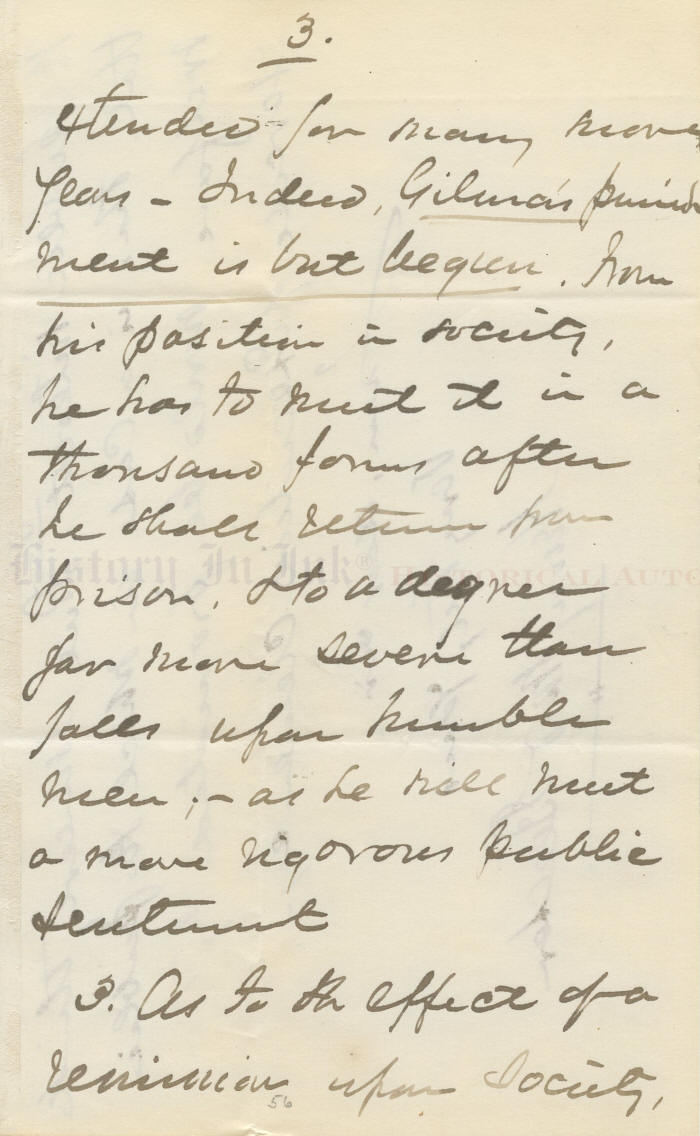 3.
xtended for many more
years – Indeed, Gilman's punish
ment is but begun. From
his position in society,
he has to meet it in a
thousand forms after
he shall return from
prison, & to a degree
far more severe than
falls upon humble
men; – as he will meet
a more rigorous public
sentiment
History In Ink® Historical Auto
3. As to the effect of a
remission upon Society,
56